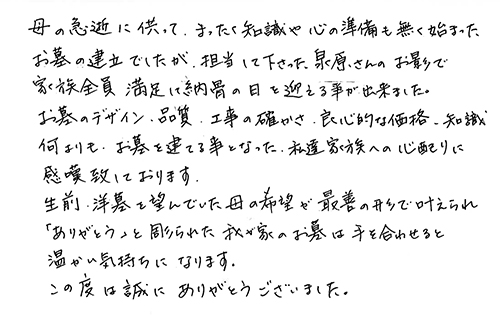 母の急逝に伴って、まったく知識や心の準備も無く始まった
お墓の建立でしたが、担当して下さった泉原さんのお影で
家族全員 満足に納骨の日を迎える事が出来ました。
お墓のデザイン、品質、工事の確かさ、良心的な価格、知識
何よりも、お墓を建てる事となった、私達家族への心配りに
感嘆致しております。
生前、洋墓を望んでいた母の希望が最善の形で叶えられ
「ありがとう」と彫られた我が家のお墓は手を合わせると
温かい気持ちになります。
この度は誠にありがとうございました。